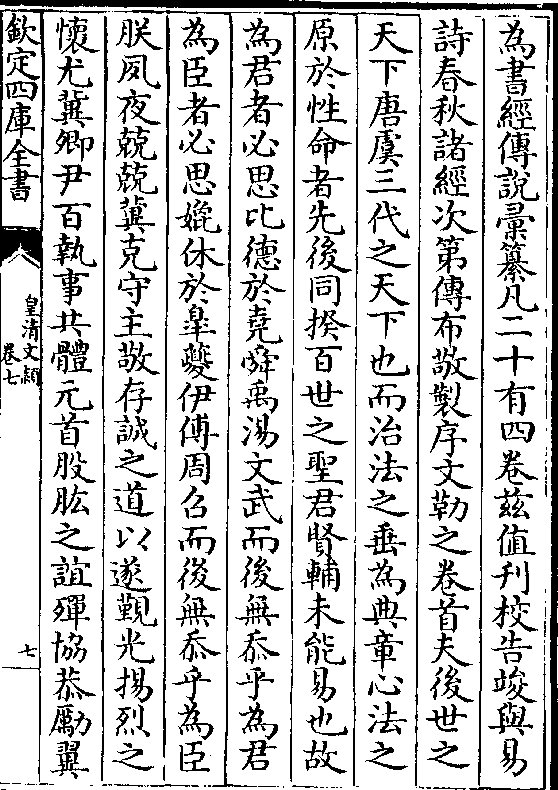 為書經傳說彚纂凡二十有四卷兹值刋校告竣與易
詩春秋諸經次第傳布敬製序文勒之卷首夫後世之
天下唐虞三代之天下也而治法之垂為典章心法之
原於性命者先後同揆百世之聖君賢輔未能易也故
為君者必思比德於堯舜禹湯文武而後無忝乎為君
為臣者必思媲休於臯夔伊傅周召而後無忝乎為臣
朕夙夜兢兢冀克守主敬存誠之道以遂覲光揚烈之
懷尤冀卿尹百執事共體元首股肱之誼殫協恭勵翼
欽定四庫全書
皇清文穎
卷七
七